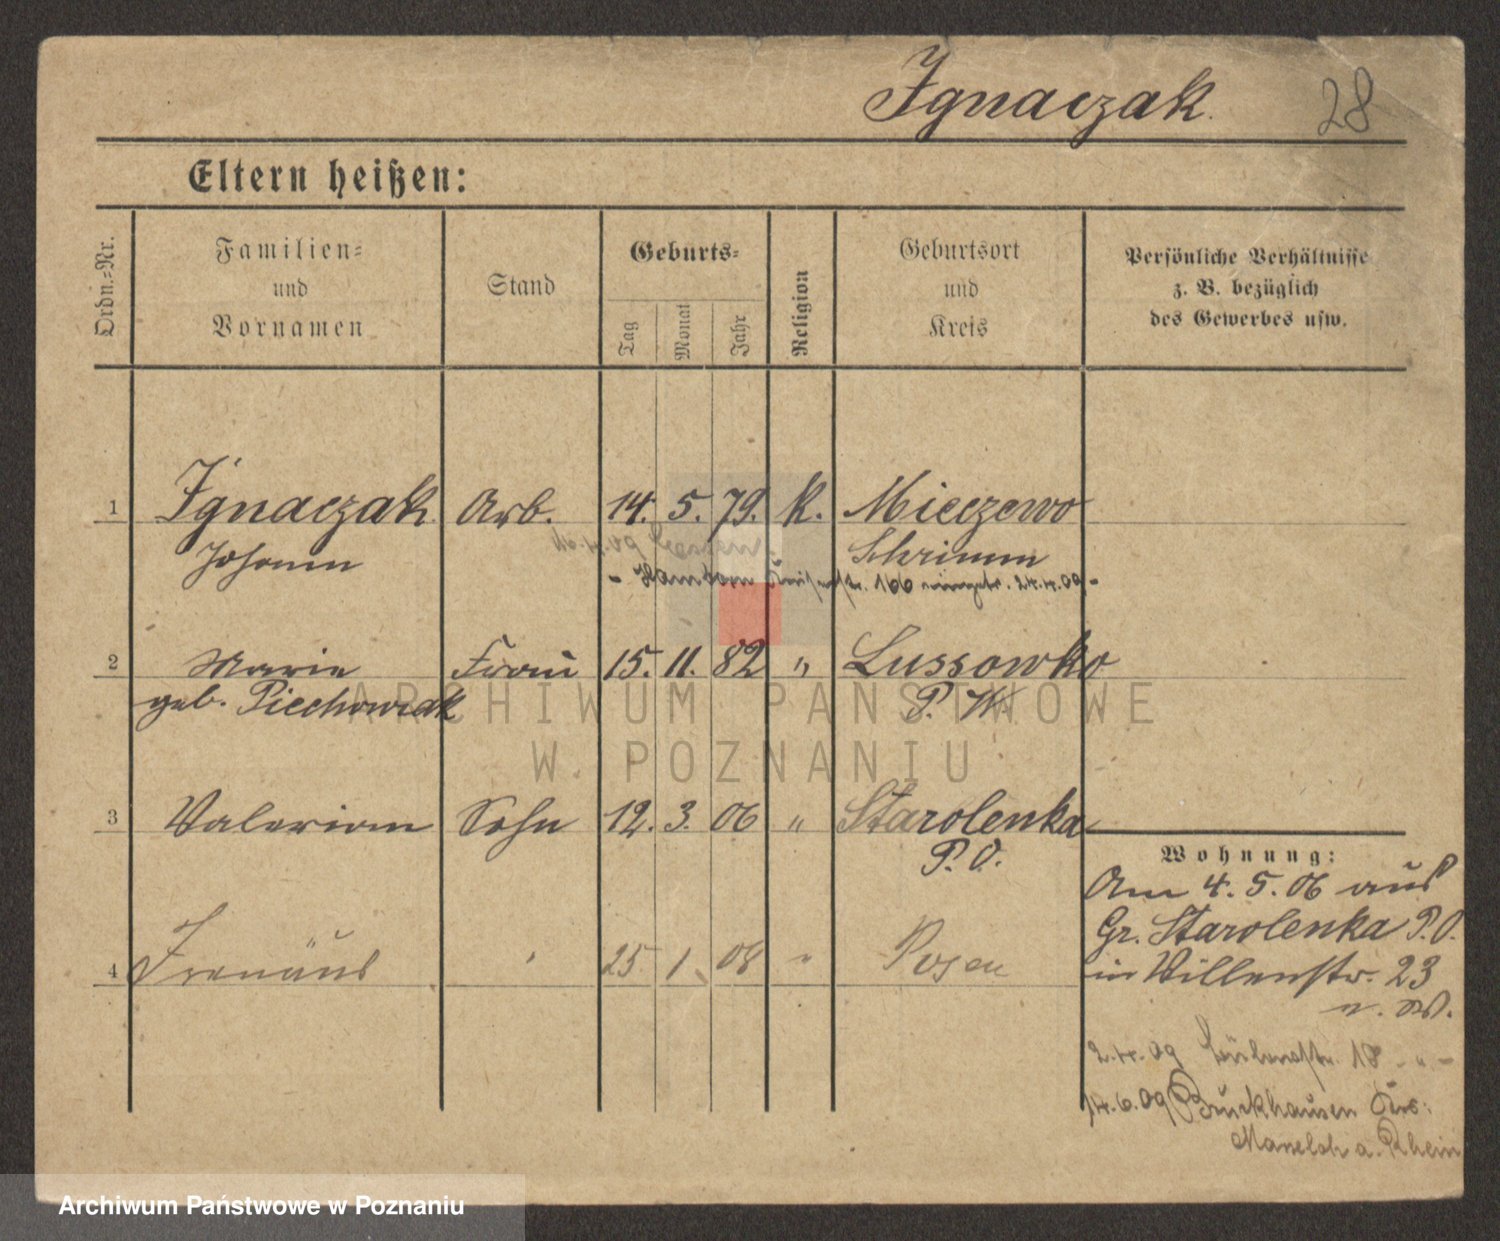 Ignaczak. 28
Eltern heißen:
Ordn.-Nr.
Familien-
und
Vornamen
Stand
Geburts-
Tag
Monat
Jahr
Religion
Geburtsort
und
Kreis
Persönliche Verhältnisse
z. B. bezüglich
des Gewerbes usw.
1 Ignaczak Arb. 14. 5. 79. K. Mieczewo
Johann Schrimm
16.4.09 Hessen
- Hamborn 166 eingetr. 24.4.09 -
2 Marie Frau 15. 11. 82 " Lussowko
geb. Piechowiak P. W.
3 Valerian Sohn 12. 3. 06 " Starolenka
P. O.
4 Irenäus ' 25 1. 08 " Posen
Wohnung:
Am 4. 5. 06 aus
Gr. Starolenka P.O.
in Villenstr. 23
2.4.09 18 - " -
14.6.09 Bruckhausen Krs:
a. Rhein
ARCHIWUM PAŃSTWOWE
W POZNANIU
Archiwum Państwowe w Poznaniu